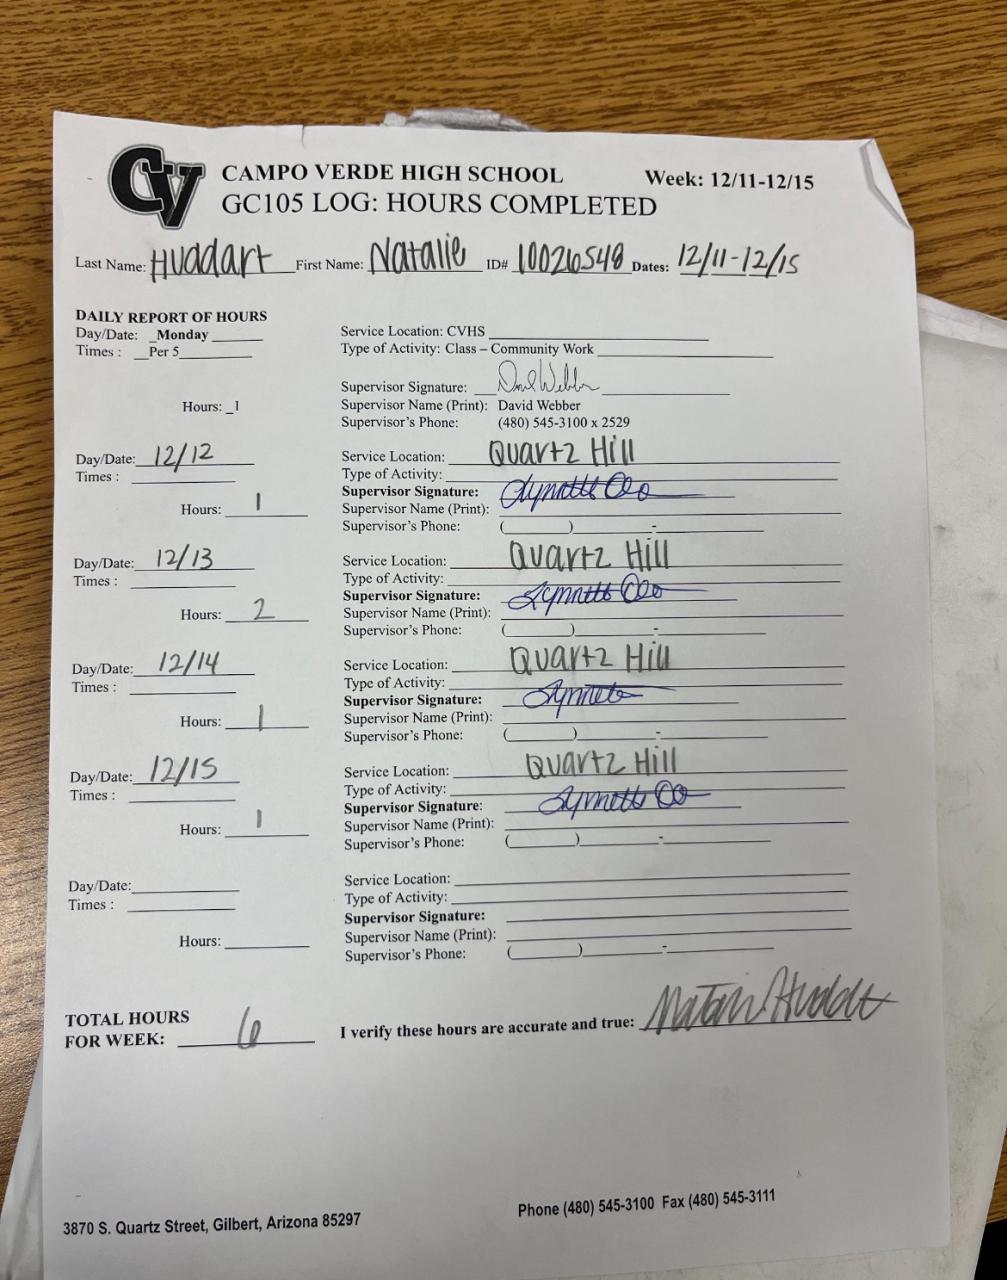 CV CAMPO VERDE HIGH SCHOOL Week: 12/11-12/15
GC105 LOG: HOURS COMPLETED
Last Name: Huddart First Name: Natalie ID# 10026548 Dates: 12/11-12/15
DAILY REPORT OF HOURS
Day/Date: _Monday Service Location: CVHS
Times : __Per 5 Type of Activity: Class – Community Work
Supervisor Signature: David Webber
Hours: _1 Supervisor Name (Print): David Webber
Supervisor's Phone: (480) 545-3100 x 2529
Day/Date: 12/12 Service Location: Quartz Hill
Times : Type of Activity:
Supervisor Signature: Lynette
Hours: 1 Supervisor Name (Print):
Supervisor's Phone: ( ) -
Day/Date: 12/13 Service Location: Quartz Hill
Times : Type of Activity:
Supervisor Signature: Lynette
Hours: 2 Supervisor Name (Print):
Supervisor's Phone: ( ) -
Day/Date: 12/14 Service Location: Quartz Hill
Times : Type of Activity:
Supervisor Signature: Lynette
Hours: 1 Supervisor Name (Print):
Supervisor's Phone: ( ) -
Day/Date: 12/15 Service Location: Quartz Hill
Times : Type of Activity:
Supervisor Signature: Lynette
Hours: 1 Supervisor Name (Print):
Supervisor's Phone: ( ) -
Day/Date: Service Location:
Times : Type of Activity:
Supervisor Signature:
Hours: Supervisor Name (Print):
Supervisor's Phone: ( ) -
TOTAL HOURS
FOR WEEK: 6 I verify these hours are accurate and true: Natalie Huddart
3870 S. Quartz Street, Gilbert, Arizona 85297 Phone (480) 545-3100 Fax (480) 545-3111